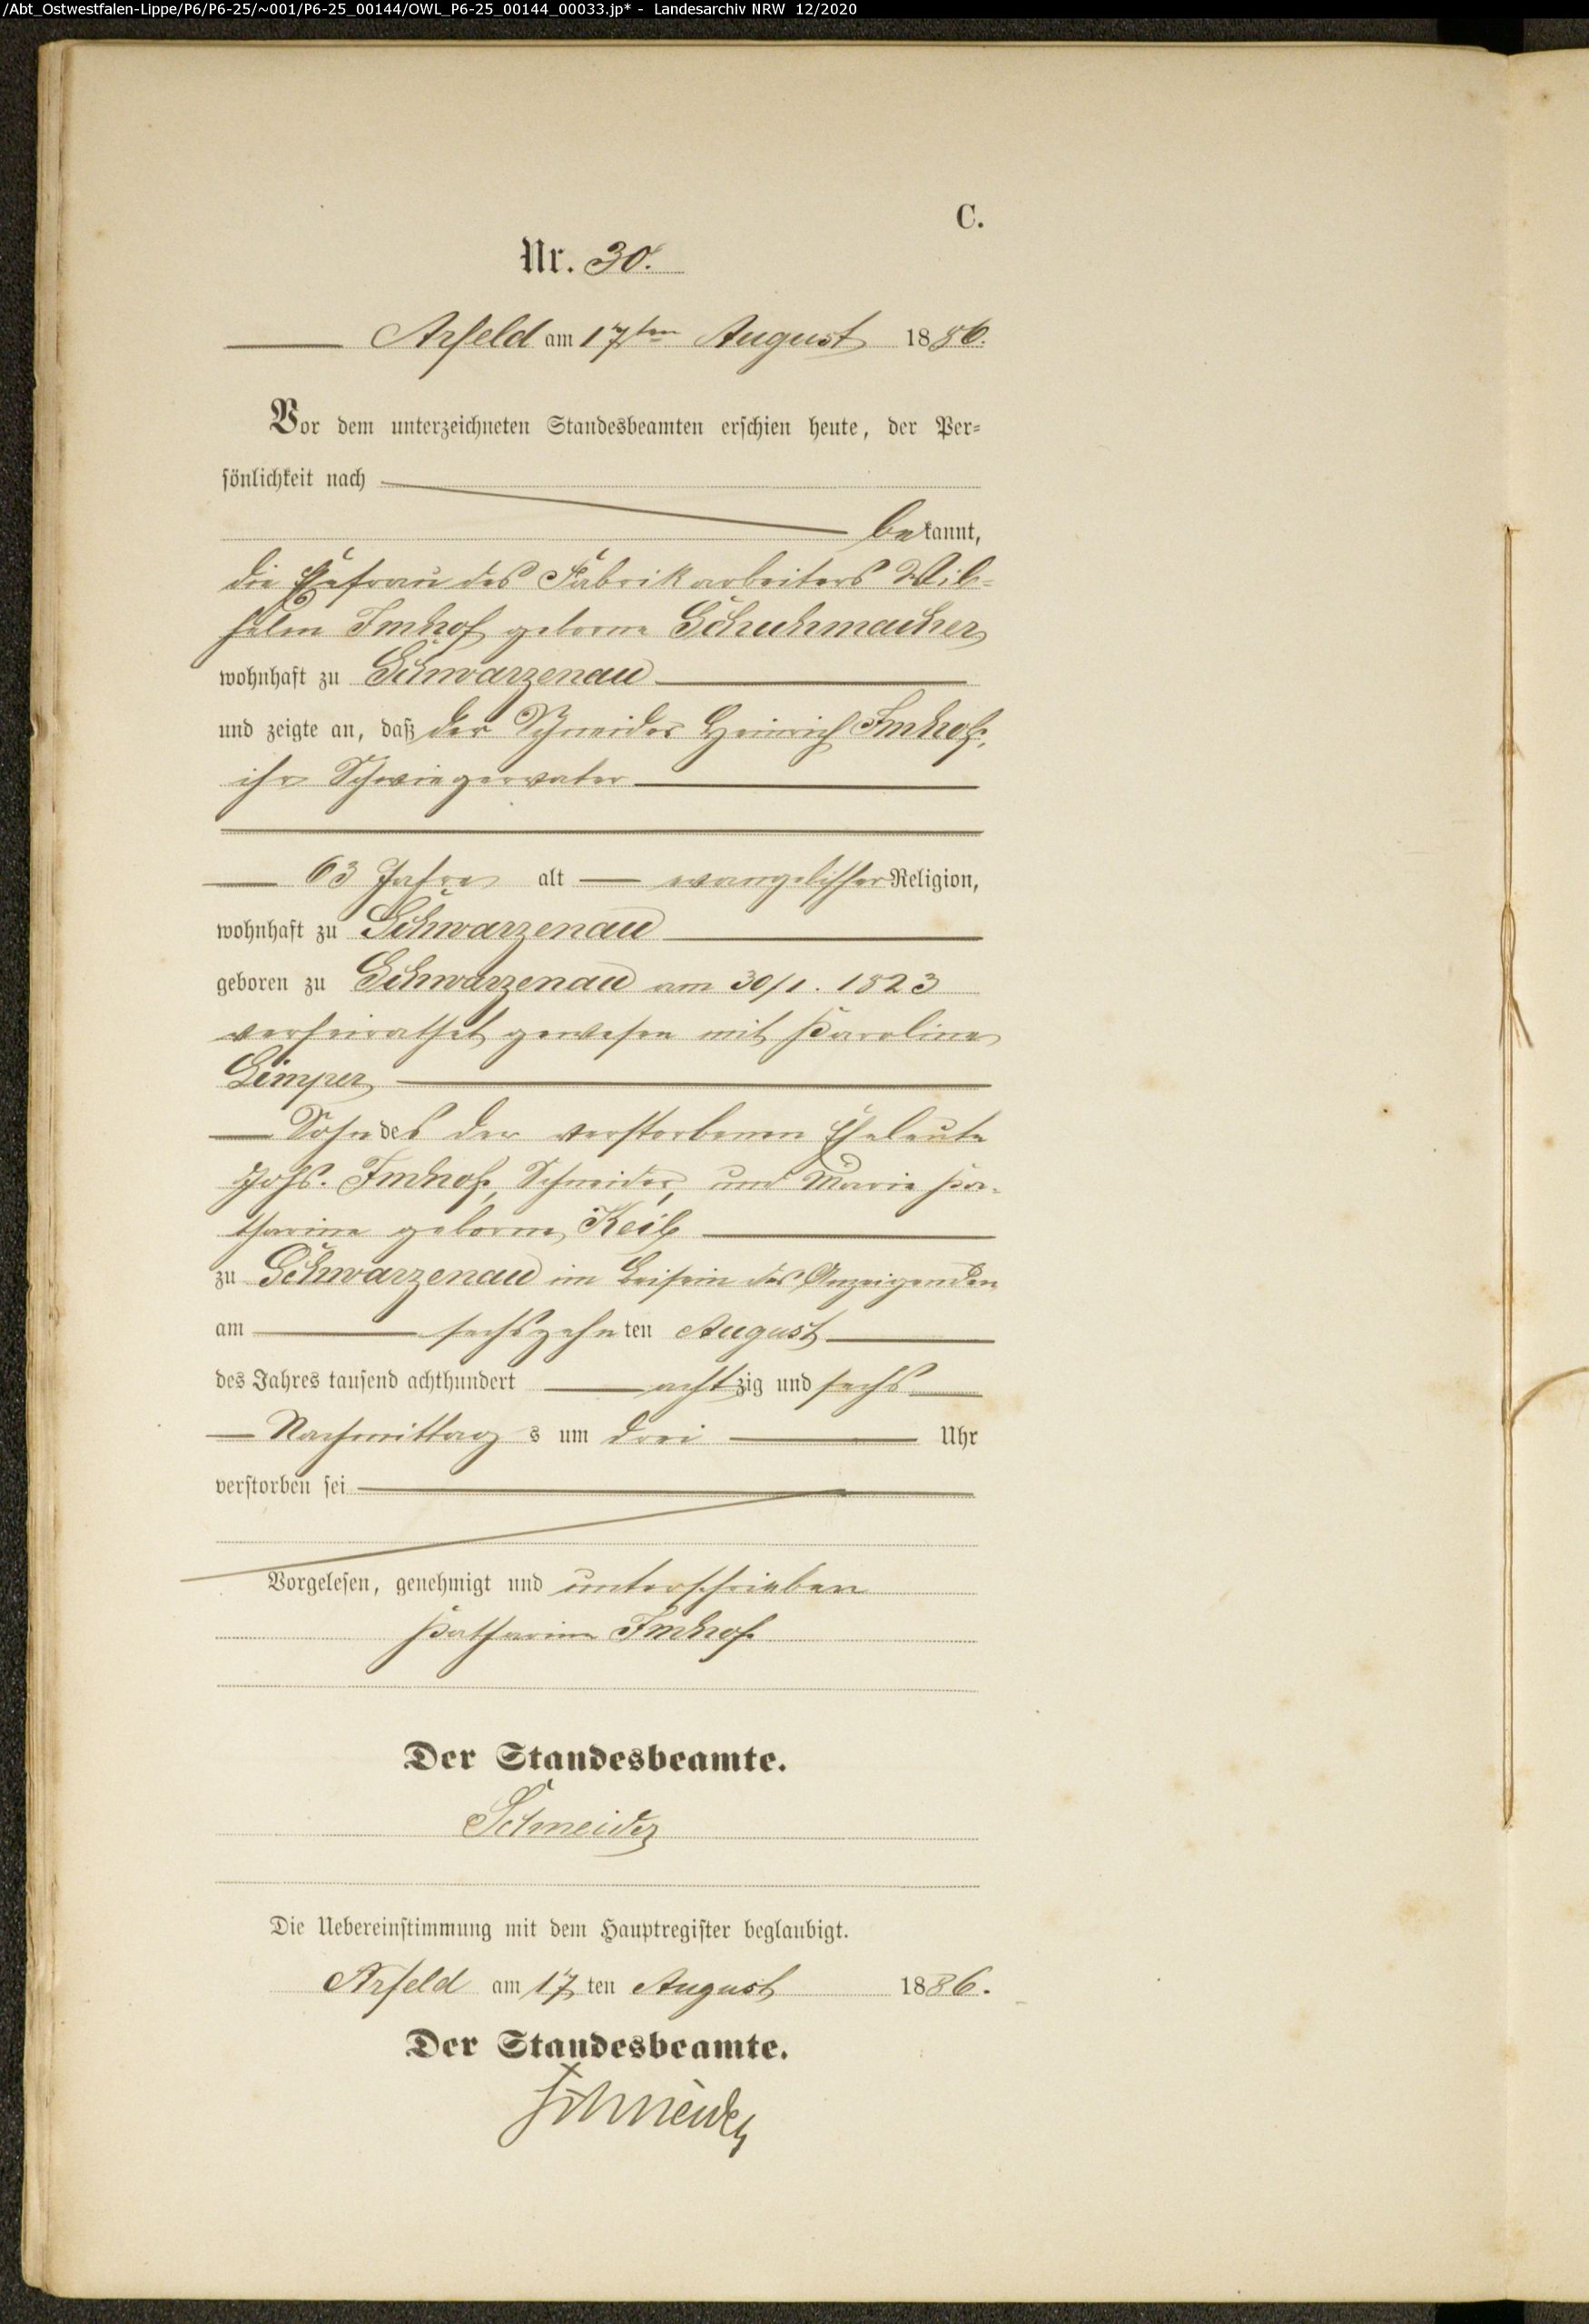 /Abt_Ostwestfalen-Lippe/P6/P6-25/~001/P6-25_00144/OWL_P6-25_00144_00033.jp* - Landesarchiv NRW 12/2020
C.
Nr. 30.
Arfeld am 17ten August 1886.
Vor dem unterzeichneten Standesbeamten erschien heute, der Per-
sönlichkeit nach
bekannt,
die Ehefrau des Fabrikarbeiters Wil-
helm Imhof geborne Schuhmacher
wohnhaft zu Schwarzenau
und zeigte an, daß der Schneider Heinrich Imhof,
ihr Schwiegervater
63 Jahre alt evangelischer Religion,
wohnhaft zu Schwarzenau
geboren zu Schwarzenau am 30/1. 1823
verheirathet gewesen mit Karoline
Sohn des der verstorbenen Eheleute
Johs. Imhof, Schneider, und Marie Ka-
tharine geborne Keil
zu Schwarzenau im Beisein des Anzeigenden
am sechszehnten August
des Jahres tausend achthundert achtzig und sechs
Nachmittags um drei Uhr
verstorben sei
Vorgelesen, genehmigt und unterschrieben
Katharine Imhof
Der Standesbeamte.
Schneider
Die Uebereinstimmung mit dem Hauptregister beglaubigt.
Arfeld am 17ten August 1886.
Der Standesbeamte.
Schneider